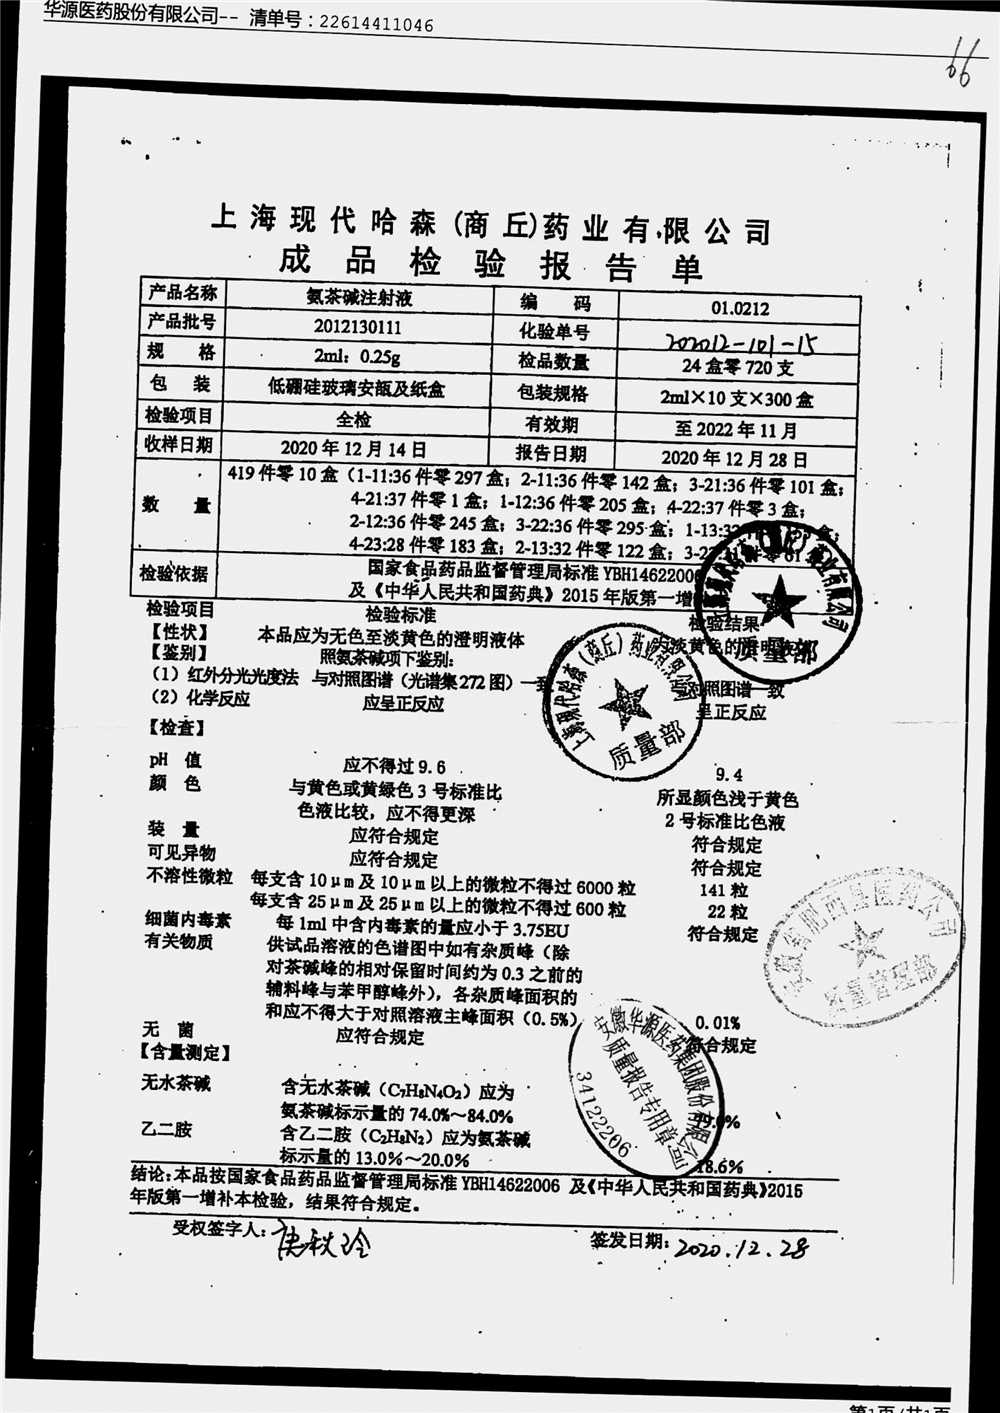 华源医药股份有限公司-- 清单号：22614411046
66
上海现代哈森(商丘)药业有限公司
成品检验报告单
产品名称 氨茶碱注射液 编 码 01.0212
产品批号 2012130111 化验单号 202012-101-15
规 格 2ml：0.25g 检品数量 24盒零720支
包 装 低硼硅玻璃安瓿及纸盒 包装规格 2ml×10支×300盒
检验项目 全检 有效期 至2022年11月
收样日期 2020年12月14日 报告日期 2020年12月28日
数 量 419件零10盒（1-11:36件零297盒；2-11:36件零142盒；3-21:36件零101盒；
4-21:37件零1盒；1-12:36件零205盒；4-22:37件零3盒；
2-12:36件零245盒；3-22:36件零295盒；1-13:3
4-23:28件零183盒；2-13:32件零122盒；3-2
检验依据 国家食品药品监督管理局标准YBH14622006
及《中华人民共和国药典》2015年版第一增
检验项目 检验标准 检验结果
【性状】 本品应为无色至淡黄色的澄明液体 淡黄色的澄明
【鉴别】 照氨茶碱项下鉴别：
（1）红外分光光度法 与对照图谱（光谱集272图）一致 对照图谱一致
（2）化学反应 应呈正反应 呈正反应
【检查】
pH 值 应不得过9.6 9.4
颜 色 与黄色或黄绿色3号标准比 所显颜色浅于黄色
色液比较，应不得更深 2号标准比色液
装 量 应符合规定 符合规定
可见异物 应符合规定 符合规定
不溶性微粒 每支含10μm及10μm以上的微粒不得过6000粒 141粒
每支含25μm及25μm以上的微粒不得过600粒 22粒
细菌内毒素 每1ml中含内毒素的量应小于3.75EU 符合规定
有关物质 供试品溶液的色谱图中如有杂质峰（除
对茶碱峰的相对保留时间约为0.3之前的
辅料峰与苯甲醇峰外），各杂质峰面积的
和应不得大于对照溶液主峰面积（0.5%） 0.01%
无 菌 应符合规定 符合规定
【含量测定】
无水茶碱 含无水茶碱（C₇H₈N₄O₂）应为
氨茶碱标示量的74.0%～84.0%
乙二胺 含乙二胺（C₂H₈N₂）应为氨茶碱
标示量的13.0%～20.0% 18.6%
结论：本品按国家食品药品监督管理局标准YBH14622006 及《中华人民共和国药典》2015
年版第一增补本检验，结果符合规定。
受权签字人： 签发日期：2020.12.28
上海现代哈森（商丘）药业有限公司
质量部
上海现代哈森（商丘）药业有限公司
质量部
安徽省肥西县医药公司
安徽华源医药集团股份有限公司
质量报告专用章
34122206
第1页/共1页